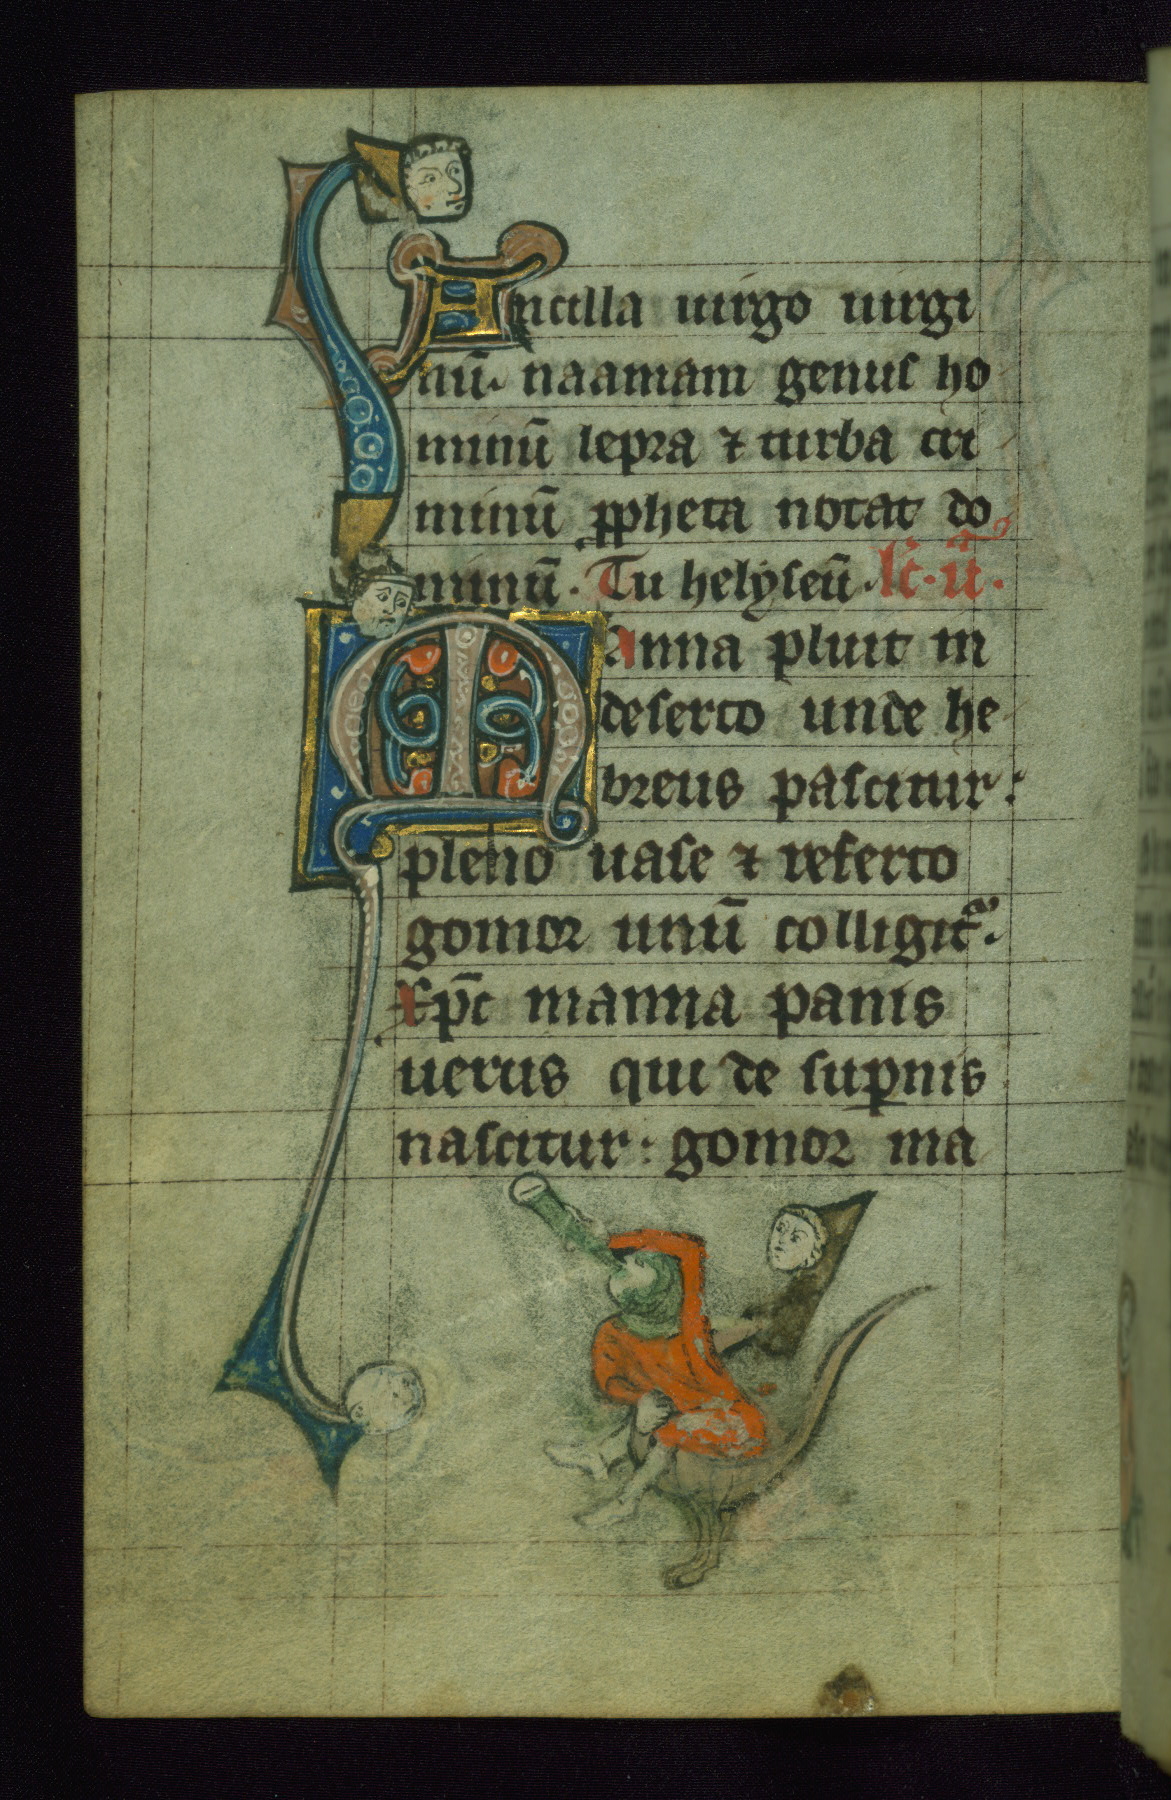 Ancilla uirgo uirgi
nū. naamam genus ho
minū lepra ⁊ turba cri
minū ꝓpheta notat do
minū. Tu helyseū. lc̄. iiᵘˢ.
Manna pluit in
deserto unde he
breus pascitur:
pleno uase ⁊ referto
gomor unū colligit᷑.
Xp̄c manna panis
uerus qui de suꝑnis
nascitur: gomor ma